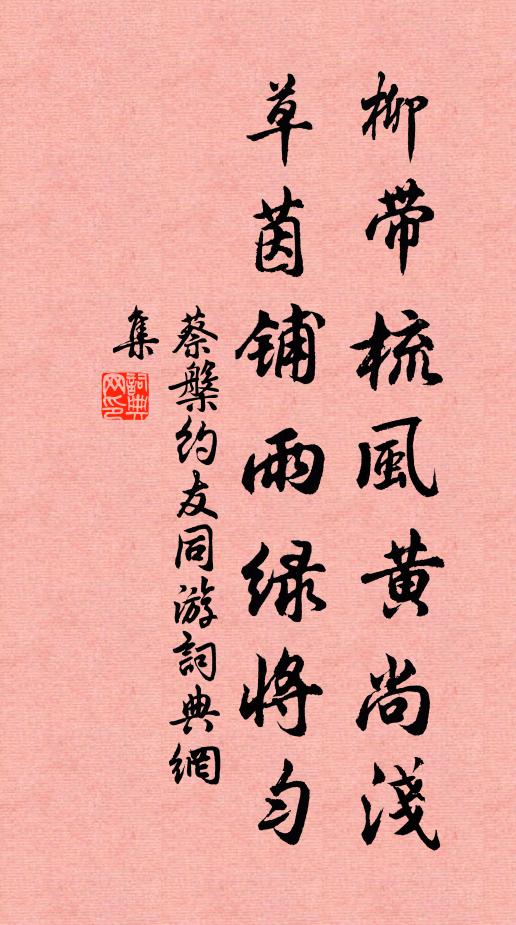 柳帶梳風黃尚淺
草茵铺雨绿將勻
蔡槃约友同游詞典網
集
詞典網印